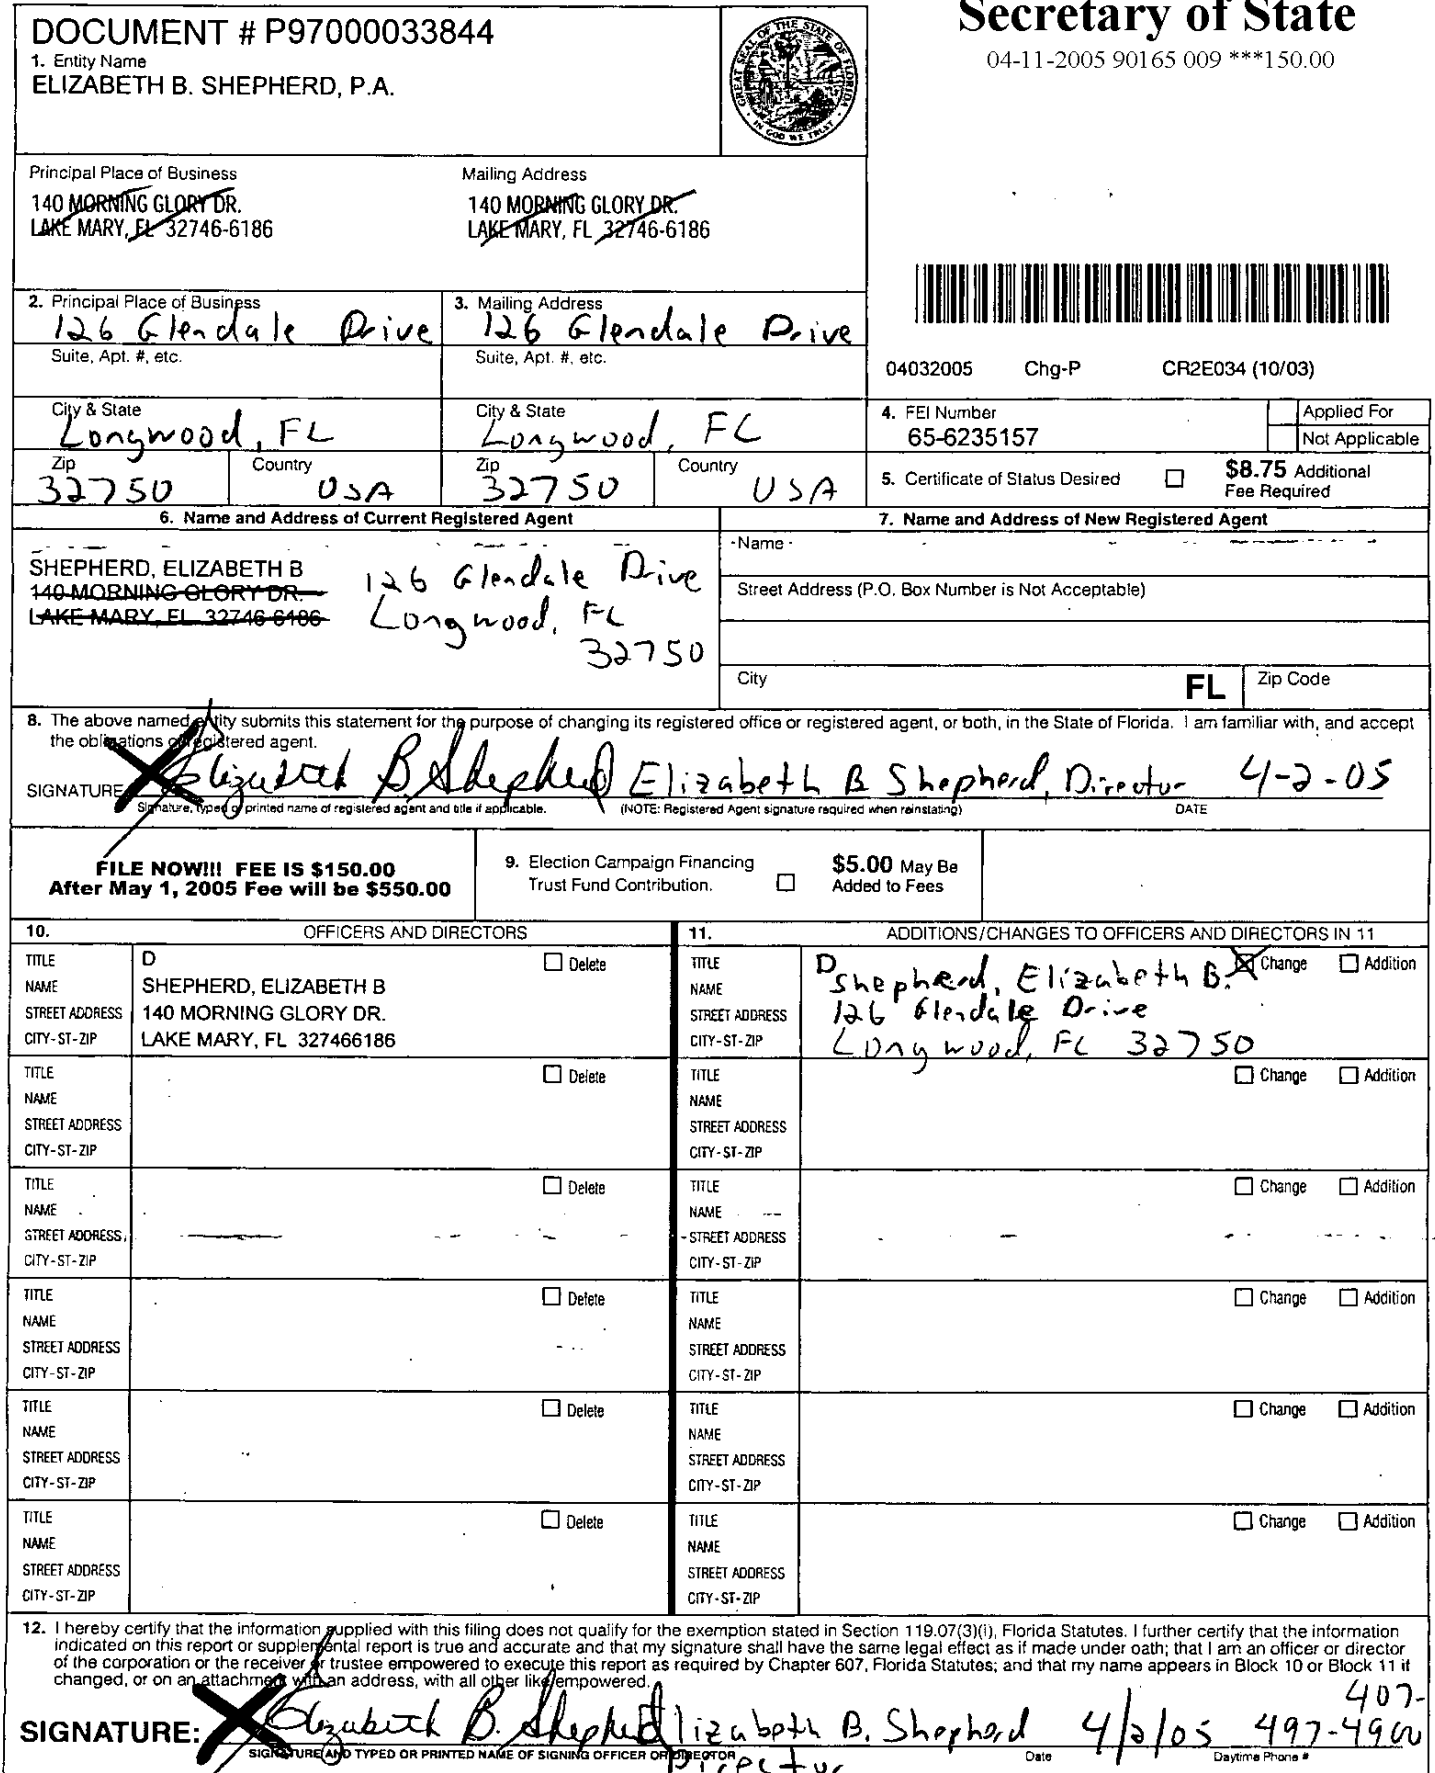 Secretary of State
04-11-2005 90165 009 ***150.00
DOCUMENT # P97000033844
1. Entity Name
ELIZABETH B. SHEPHERD, P.A.
GREAT SEAL OF THE STATE OF FLORIDA
IN GOD WE TRUST
Principal Place of Business
140 MORNING GLORY DR.
LAKE MARY, FL 32746-6186
Mailing Address
140 MORNING GLORY DR.
LAKE MARY, FL 32746-6186
2. Principal Place of Business
126 Glendale Drive
Suite, Apt. #, etc.
City & State
Longwood, FL
Zip
32750
Country
USA
3. Mailing Address
126 Glendale Drive
Suite, Apt. #, etc.
City & State
Longwood, FL
Zip
32750
Country
USA
04032005 Chg-P CR2E034 (10/03)
4. FEI Number
65-6235157
Applied For
Not Applicable
5. Certificate of Status Desired
$8.75 Additional
Fee Required
6. Name and Address of Current Registered Agent
SHEPHERD, ELIZABETH B
140 MORNING GLORY DR.
LAKE MARY, FL 32746-6186
126 Glendale Drive
Longwood, FL
32750
7. Name and Address of New Registered Agent
Name
Street Address (P.O. Box Number is Not Acceptable)
City
FL
Zip Code
8. The above named entity submits this statement for the purpose of changing its registered office or registered agent, or both, in the State of Florida. I am familiar with, and accept
the obligations of registered agent.
SIGNATURE Elizabeth B. Shepherd Elizabeth B Shepherd, Director 4-2-05
Signature, typed or printed name of registered agent and title if applicable. (NOTE: Registered Agent signature required when reinstating) DATE
FILE NOW!!! FEE IS $150.00
After May 1, 2005 Fee will be $550.00
9. Election Campaign Financing
Trust Fund Contribution.
$5.00 May Be
Added to Fees
10. OFFICERS AND DIRECTORS
TITLE D Delete
NAME SHEPHERD, ELIZABETH B
STREET ADDRESS 140 MORNING GLORY DR.
CITY-ST-ZIP LAKE MARY, FL 327466186
TITLE Delete
NAME
STREET ADDRESS
CITY-ST-ZIP
TITLE Delete
NAME
STREET ADDRESS
CITY-ST-ZIP
TITLE Delete
NAME
STREET ADDRESS
CITY-ST-ZIP
TITLE Delete
NAME
STREET ADDRESS
CITY-ST-ZIP
TITLE Delete
NAME
STREET ADDRESS
CITY-ST-ZIP
11. ADDITIONS/CHANGES TO OFFICERS AND DIRECTORS IN 11
TITLE D Change Addition
NAME Shepherd, Elizabeth B.
STREET ADDRESS 126 Glendale Drive
CITY-ST-ZIP Longwood, FL 32750
TITLE Change Addition
NAME
STREET ADDRESS
CITY-ST-ZIP
TITLE Change Addition
NAME
STREET ADDRESS
CITY-ST-ZIP
TITLE Change Addition
NAME
STREET ADDRESS
CITY-ST-ZIP
TITLE Change Addition
NAME
STREET ADDRESS
CITY-ST-ZIP
TITLE Change Addition
NAME
STREET ADDRESS
CITY-ST-ZIP
12. I hereby certify that the information supplied with this filing does not qualify for the exemption stated in Section 119.07(3)(i), Florida Statutes. I further certify that the information
indicated on this report or supplemental report is true and accurate and that my signature shall have the same legal effect as if made under oath; that I am an officer or director
of the corporation or the receiver or trustee empowered to execute this report as required by Chapter 607, Florida Statutes; and that my name appears in Block 10 or Block 11 if
changed, or on an attachment with an address, with all other like empowered.
407-
SIGNATURE: Elizabeth B. Shepherd Elizabeth B. Shepherd 4/2/05 497-4900
SIGNATURE AND TYPED OR PRINTED NAME OF SIGNING OFFICER OR DIRECTOR Date Daytime Phone #
Director